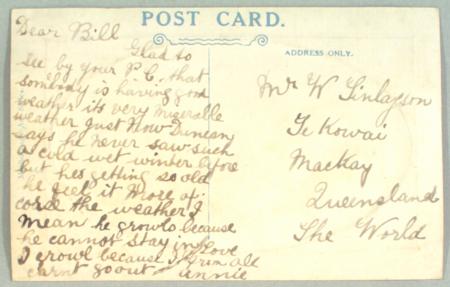 POST CARD.
Dear Bill
Glad to
see by your P.C. that
somebody is having good
weather its very miserable
weather just now Duncan
says he never saw such
a cold wet winter before
but hes getting so old
he feels it more of
course the weather I
mean he growls because
he cannot stay in Love
I growl because I from all
carnt go out Annie
ADDRESS ONLY.
Mr W Finlayson
Te Kowai
Mackay
Queensland
The World